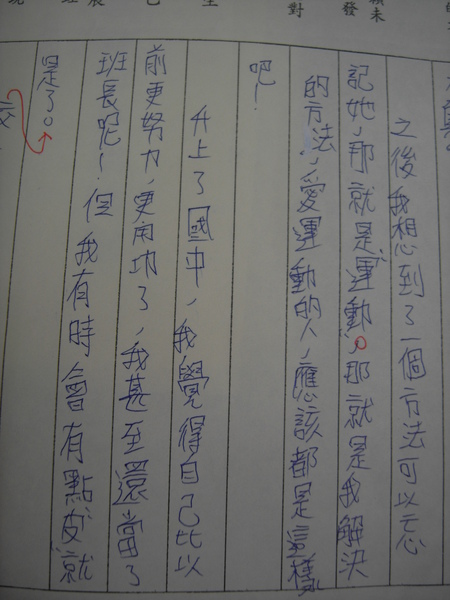 之後我想到了一個方法可以忘
記她,那就是"運動",那就是我解決
的方法,愛運動的人,應該都是這樣
吧!
升上了國中,我覺得自己比以
前更努力,更用功了,我甚至還當了
班長呢!但我有時會有點皮就
是了。